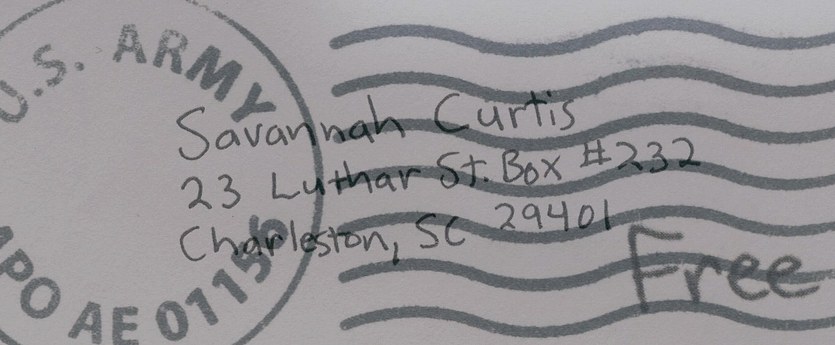 U.S. ARMY
Savannah Curtis
23 Luthar St. Box #232
Charleston, SC 29401
Free
APO AE 01155